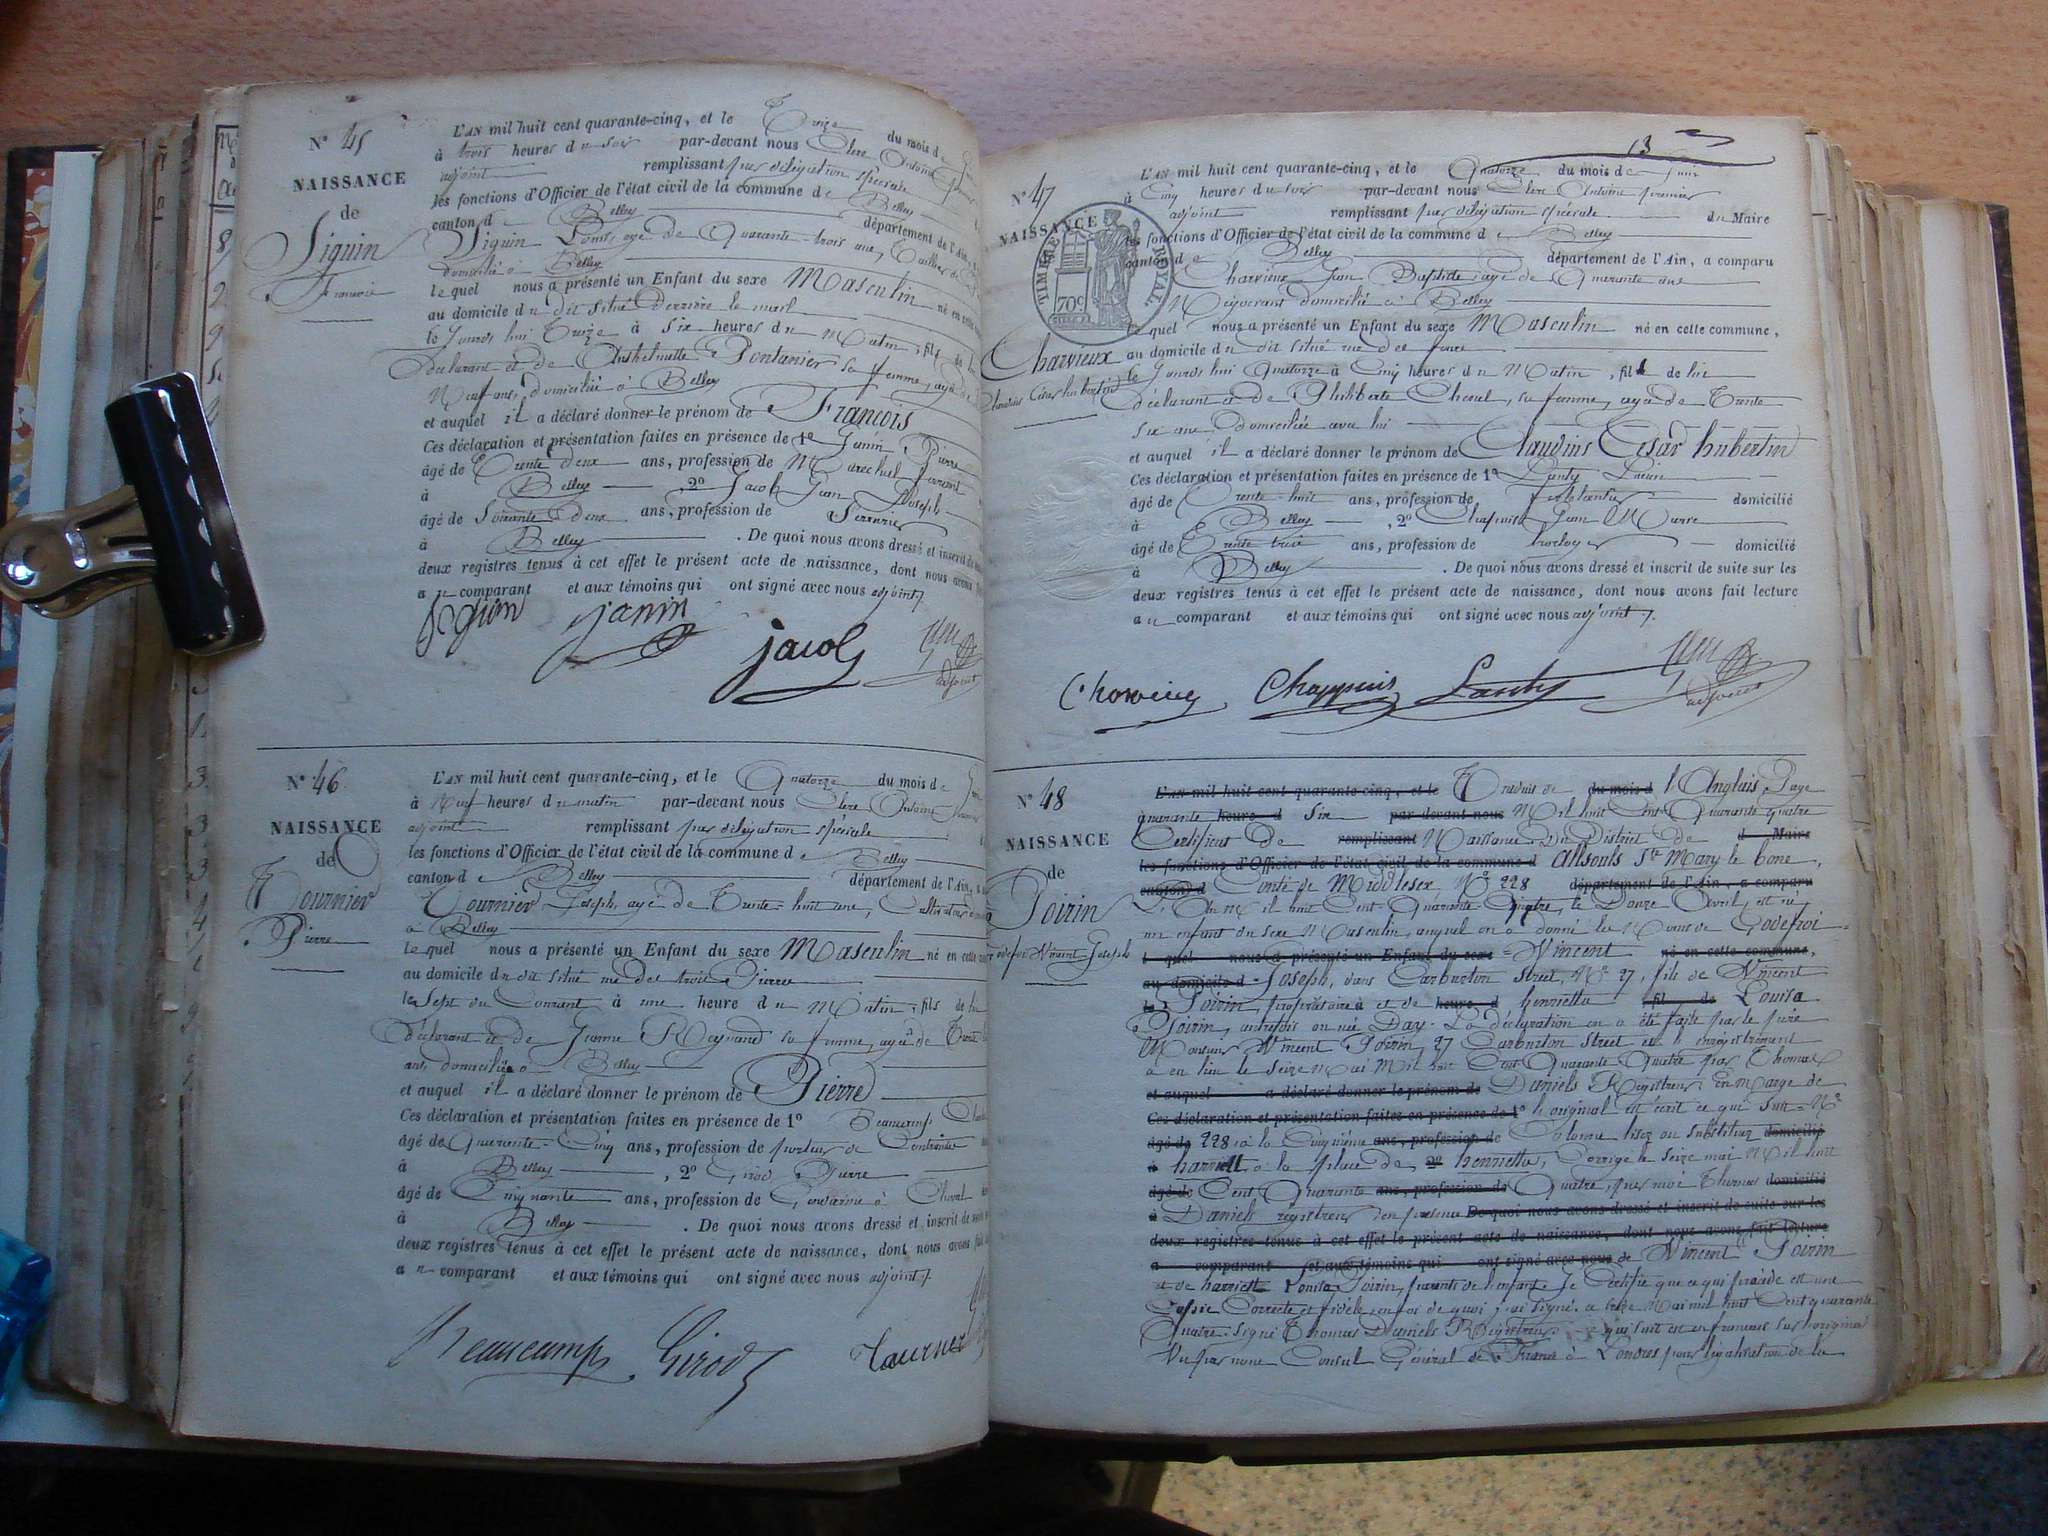 N° 45
NAISSANCE
de
Siguin
François
L'AN mil huit cent quarante-cinq, et le Treize du mois de
à trois heures du soir par-devant nous Clerc Antoine
adjoint remplissant par délégation spéciale
les fonctions d'Officier de l'état civil de la commune de Belley
canton de Belley département de l'Ain,
Siguin Louis, agé de Quarante-trois ans, Tailleur de
domicilié à Belley
lequel nous a présenté un Enfant du sexe Masculin né en cette
au domicile du dit situé derrière le mail
le Jourd'hui Treize à six heures du Matin, fils de lui
déclarant et de Anthelmette Pontanier sa femme, agée de
Neuf ans, domiciliée à Belley
et auquel il a déclaré donner le prénom de François
Ces déclaration et présentation faites en présence de 1° Janin Pierre
âgé de Trente deux ans, profession de Maréchal ferrant
à Belley, 2° Jacob Jean Joseph
âgé de Soixante deux ans, profession de Serrurier
à Belley. De quoi nous avons dressé et inscrit de
deux registres tenus à cet effet le présent acte de naissance, dont nous avons
au comparant et aux témoins qui ont signé avec nous adjoint.
Siguin janin jacob adjoint
N° 46
NAISSANCE
de
Tournier
Pierre
L'AN mil huit cent quarante-cinq, et le Quatorze du mois de
à Neuf heures du matin par-devant nous Clerc Antoine
adjoint remplissant par délégation spéciale
les fonctions d'Officier de l'état civil de la commune de Belley
canton de Belley département de l'Ain,
Tournier Joseph, agé de Trente-huit ans, Cultivateur
à Belley
lequel nous a présenté un Enfant du sexe Masculin né en cette
au domicile du dit situé rue des trois Pierres
le Sept du Courant à une heure du Matin, fils de lui
déclarant et de Jeanne Reynaud sa femme, agée de Trente
ans, domiciliée à Belley
et auquel il a déclaré donner le prénom de Pierre
Ces déclaration et présentation faites en présence de 1° Beaucamp
âgé de Quarante-Cinq ans, profession de porteur de Contrainte
à Belley, 2° Girod Pierre
âgé de Cinquante ans, profession de Gendarme à Cheval
à Belley. De quoi nous avons dressé et inscrit de suite
deux registres tenus à cet effet le présent acte de naissance, dont nous avons fait
au comparant et aux témoins qui ont signé avec nous adjoint.
Beaucamp Girod Tournier
13
N° 47
NAISSANCE
TIMBRE ROYAL
70c
Charvieux
Claudius César hubertin
L'AN mil huit cent quarante-cinq, et le Quatorze du mois de Juin
à Cinq heures du soir par-devant nous Clerc Antoine premier
adjoint remplissant par délégation spéciale du Maire
les fonctions d'Officier de l'état civil de la commune de Belley
canton de Belley département de l'Ain, a comparu
Charvieux Jean Baptiste, agé de Quarante ans
Négociant domicilié à Belley
lequel nous a présenté un Enfant du sexe Masculin né en cette commune,
au domicile du dit situé rue des
le Jourd'hui Quatorze à Cinq heures du Matin, fils de lui
déclarant et de Philiberte Chenel, sa femme, agée de Trente
six ans domiciliée avec lui
et auquel il a déclaré donner le prénom de Claudius César hubertin
Ces déclaration et présentation faites en présence de 1° Lanty
âgé de Trente-huit ans, profession de ferblantier domicilié
à Belley, 2° Chapuis Jean Marie
âgé de Trente trois ans, profession de horloger domicilié
à Belley. De quoi nous avons dressé et inscrit de suite sur les
deux registres tenus à cet effet le présent acte de naissance, dont nous avons fait lecture
au comparant et aux témoins qui ont signé avec nous adjoint.
Charvieux Chappuis Lanty adjoint
N° 48
NAISSANCE
de
Poirin
Godefroi Vincent Joseph
L'AN mil huit cent quarante-cinq, et le Traduit de du mois d l'Anglais Page
quarante heure d six par-devant nous Mil huit Cent Quarante quatre
Certificat de remplissant Naissance du District de d Maire
les fonctions d'Officier de l'état civil de la commune d Allsouls Ste Mary le bone,
canton d Comté de Middlesex, N° 228 département de l'Ain, a comparu
L'An Mil huit Cent Quarante-Quatre, le Douze Avril, est né
un enfant du sexe Masculin, auquel on a donné les Noms de Godefroi
l quel nous a présenté un Enfant du sexe Vincent né en cette commune,
au domicile d Joseph, dans Carburton Street, N° 27, fils de Vincent
le Poirin, propriétaire et de heure d henrietta fil de Louisa
Poirin, autrefois ou née Day. La déclaration en a été faite par le père
Monsieur Vincent Poirin, 27 Carburton Street et l'enregistrement
a eu lieu le seize Mai Mil huit Cent Quarante Quatre par Thomas
et auquel a déclaré donner le prénom de Daniels Registreur En Marge de
Ces déclaration et présentation faites en présence de 1° l'original est écrit ce qui suit = N°
âgé de 228, à la Cinquième ans, profession de Colonne lisez ou substituez domicilié
à harriett à la place de 2° henrietta, Corrigé le seize mai Mil huit
âgé de Cent Quarante ans, profession de Quatre, par moi Thomas domicilié
à Daniels registreur en présence De quoi nous avons dressé et inscrit de suite sur les
deux registres tenus à cet effet le présent acte de naissance, dont nous avons fait lecture
a comparant et aux témoins qui ont signé avec nous de Vincent Poirin
et de harriett Louisa Poirin, parents de l'enfant. Je Certifie que ce qui précède est une
Copie Correcte et fidèle, en foi de quoi j'ai signé. ce seize Mai mil huit Cent quarante
Quatre. signé Thomas Daniels Registreur. ce qui suit est en français sur l'original
Vu par nous Consul Général de France à Londres pour légalisation de la